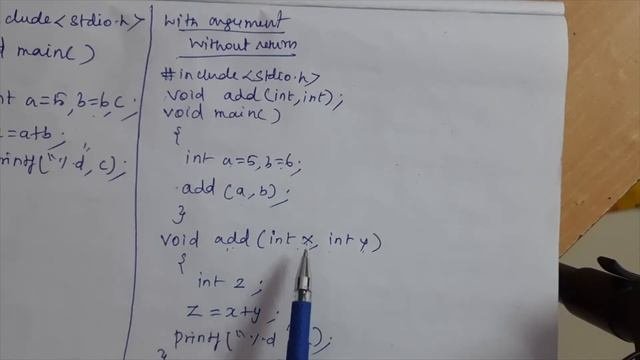 clude<stdio.h>
main()
int a=5, b=6 c;
=a+b;
printf("%d", c);
With argument
Without return
#include<stdio.h>
void add(int, int);
void main()
{
int a=5, b=6;
add(a, b);
}
void add(int x, int y)
{
int z;
z = x+y;
printf("%d
);
}